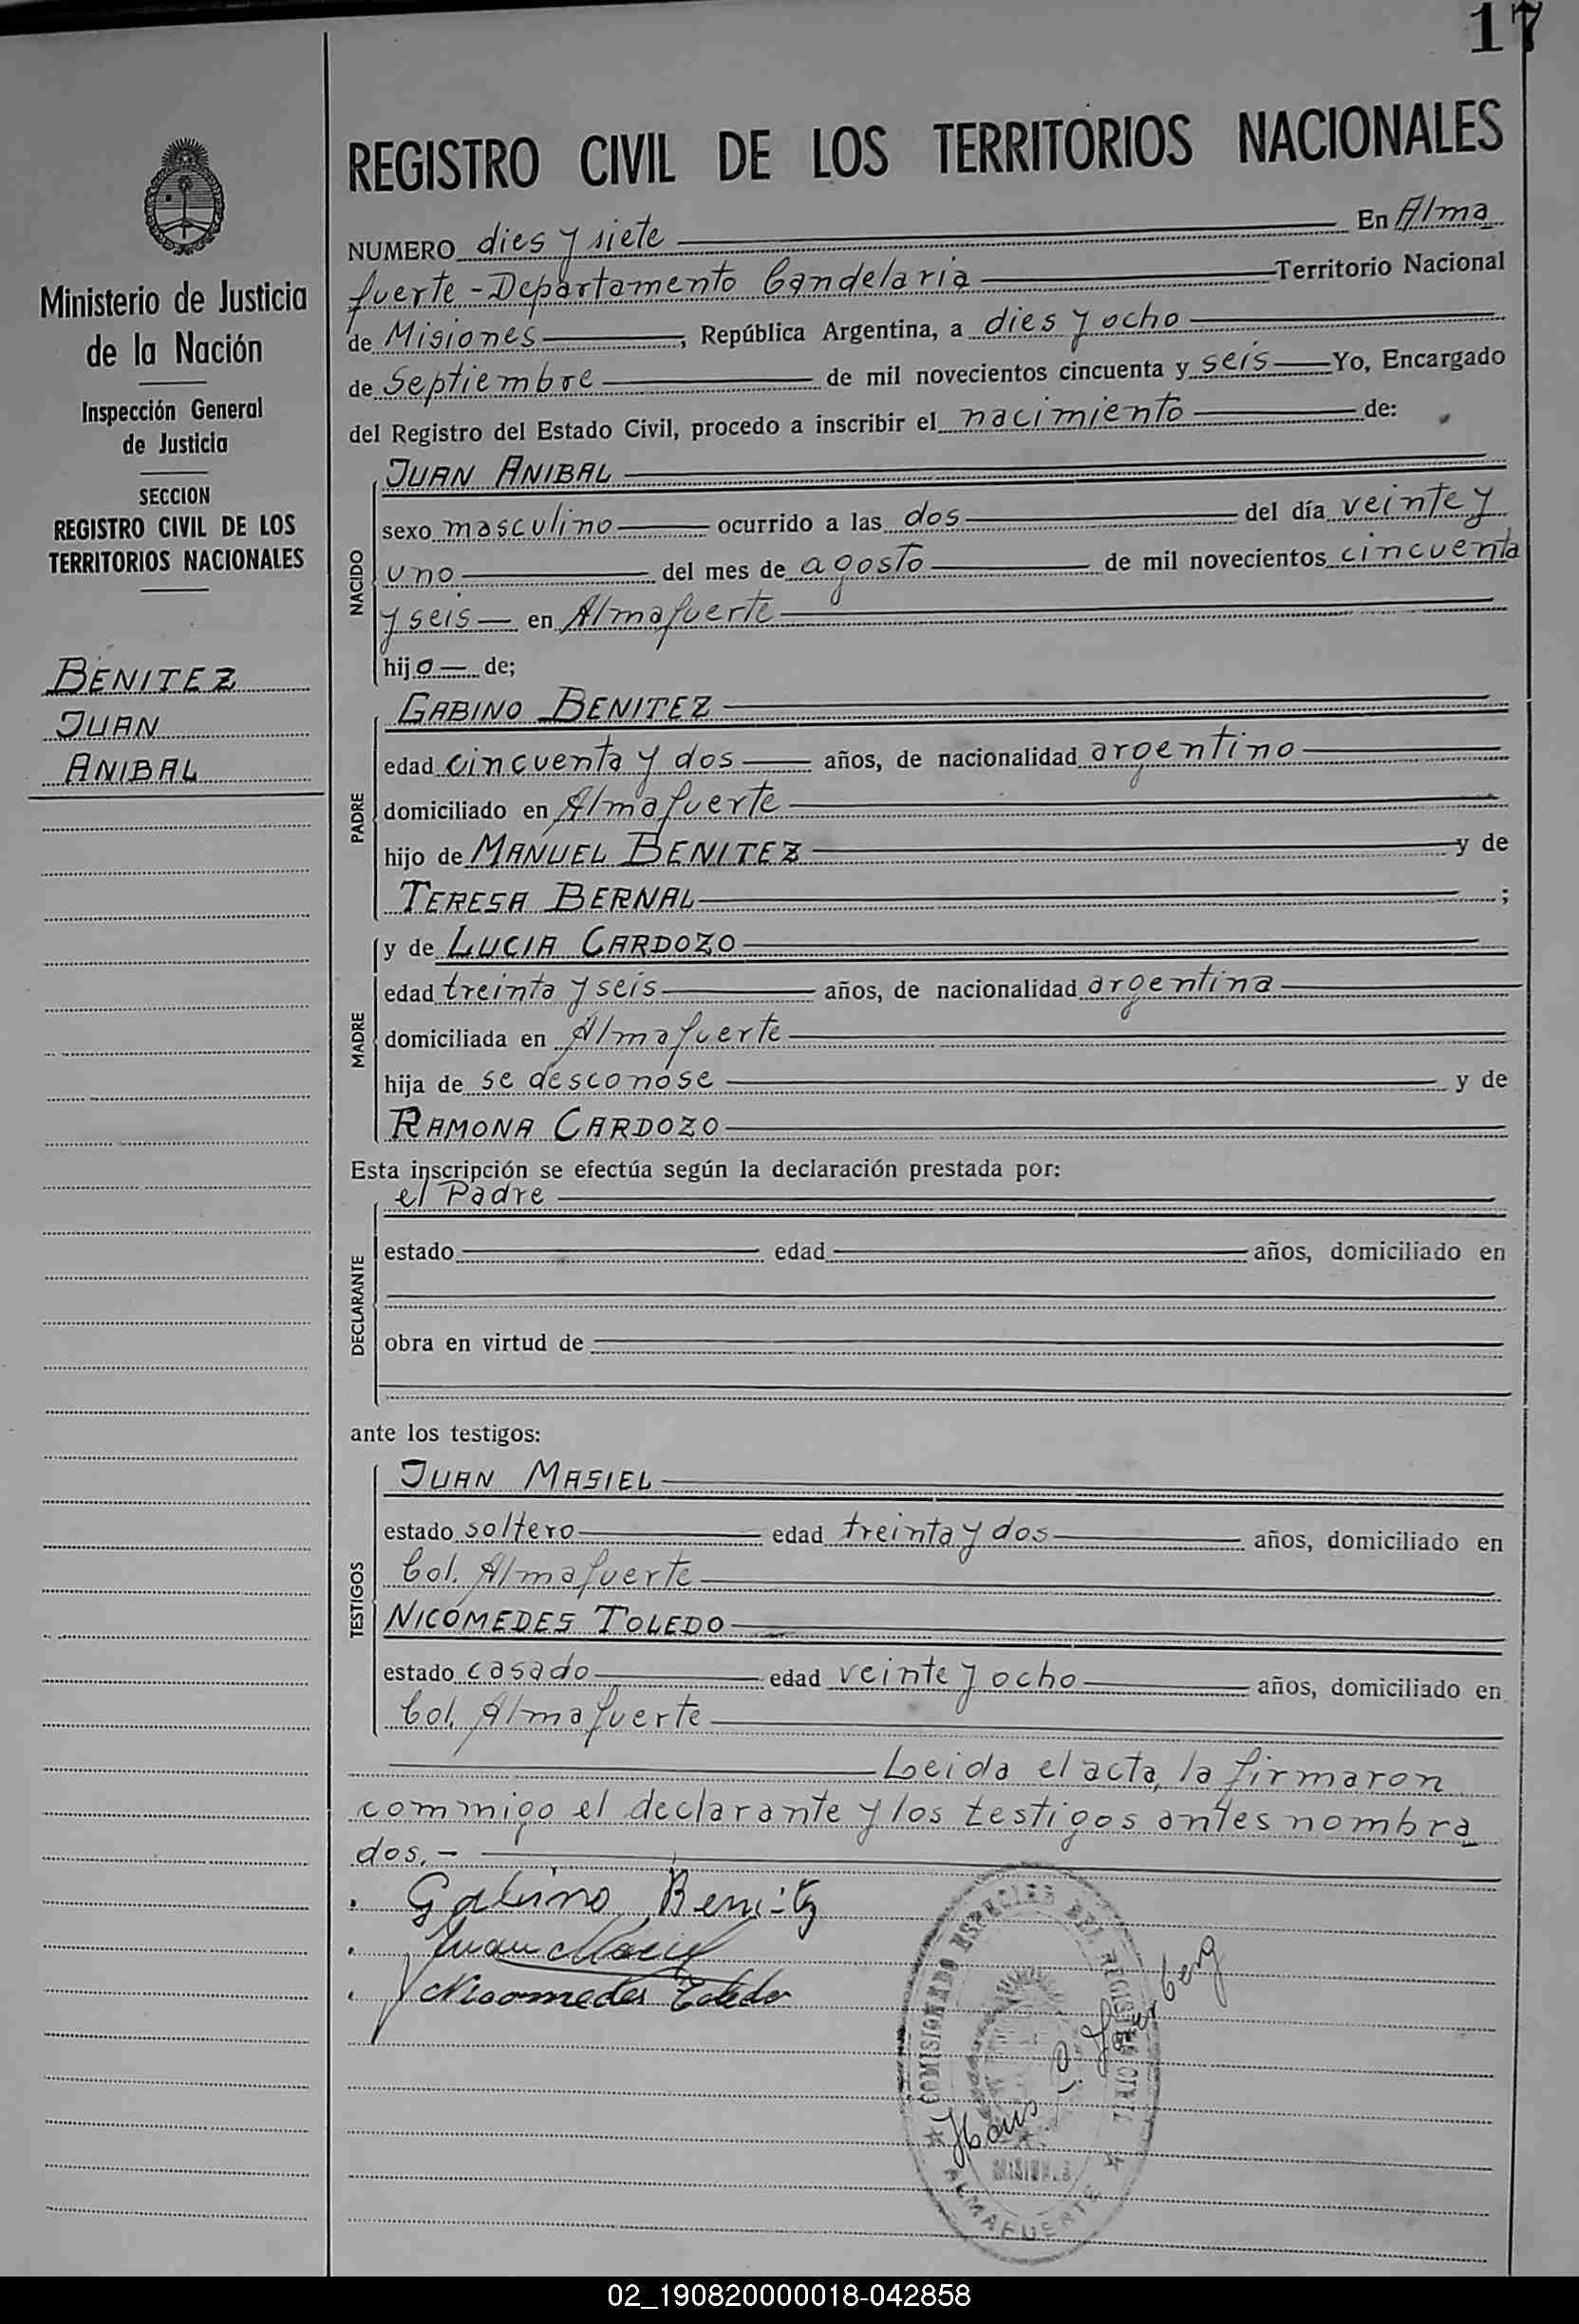 17
REGISTRO CIVIL DE LOS TERRITORIOS NACIONALES
Ministerio de Justicia
de la Nación
Inspección General
de Justicia
SECCION
REGISTRO CIVIL DE LOS
TERRITORIOS NACIONALES
BENITEZ
JUAN
ANIBAL
NUMERO dies y siete En Alma
fuerte - Departamento Candelaria Territorio Nacional
de Misiones ; República Argentina, a dies y ocho
de Septiembre de mil novecientos cincuenta y seis Yo, Encargado
del Registro del Estado Civil, procedo a inscribir el nacimiento de:
NACIDO
JUAN ANIBAL
sexo masculino ocurrido a las dos del día veinte y
uno del mes de agosto de mil novecientos cincuenta
y seis en Almafuerte
hijo de;
PADRE
GABINO BENITEZ
edad cincuenta y dos años, de nacionalidad argentino
domiciliado en Almafuerte
hijo de MANUEL BENITEZ y de
TERESA BERNAL ;
MADRE
y de LUCIA CARDOZO
edad treinta y seis años, de nacionalidad argentina
domiciliada en Almafuerte
hija de se desconose y de
RAMONA CARDOZO
Esta inscripción se efectúa según la declaración prestada por:
DECLARANTE
el Padre
estado edad años, domiciliado en
obra en virtud de
ante los testigos:
TESTIGOS
JUAN MASIEL
estado soltero edad treinta y dos años, domiciliado en
Col. Almafuerte
NICOMEDES TOLEDO
estado casado edad veinte y ocho años, domiciliado en
Col. Almafuerte
Leida el acta, la firmaron
commigo el declarante y los testigos antes nombra
dos.-
Gabino Benitz
Juan Maciel
Nicomedes Toledo
COMISIONADO ESPECIAL DEL REGISTRO CIVIL
MISIONES
ALMAFUERTE
02_190820000018-042858